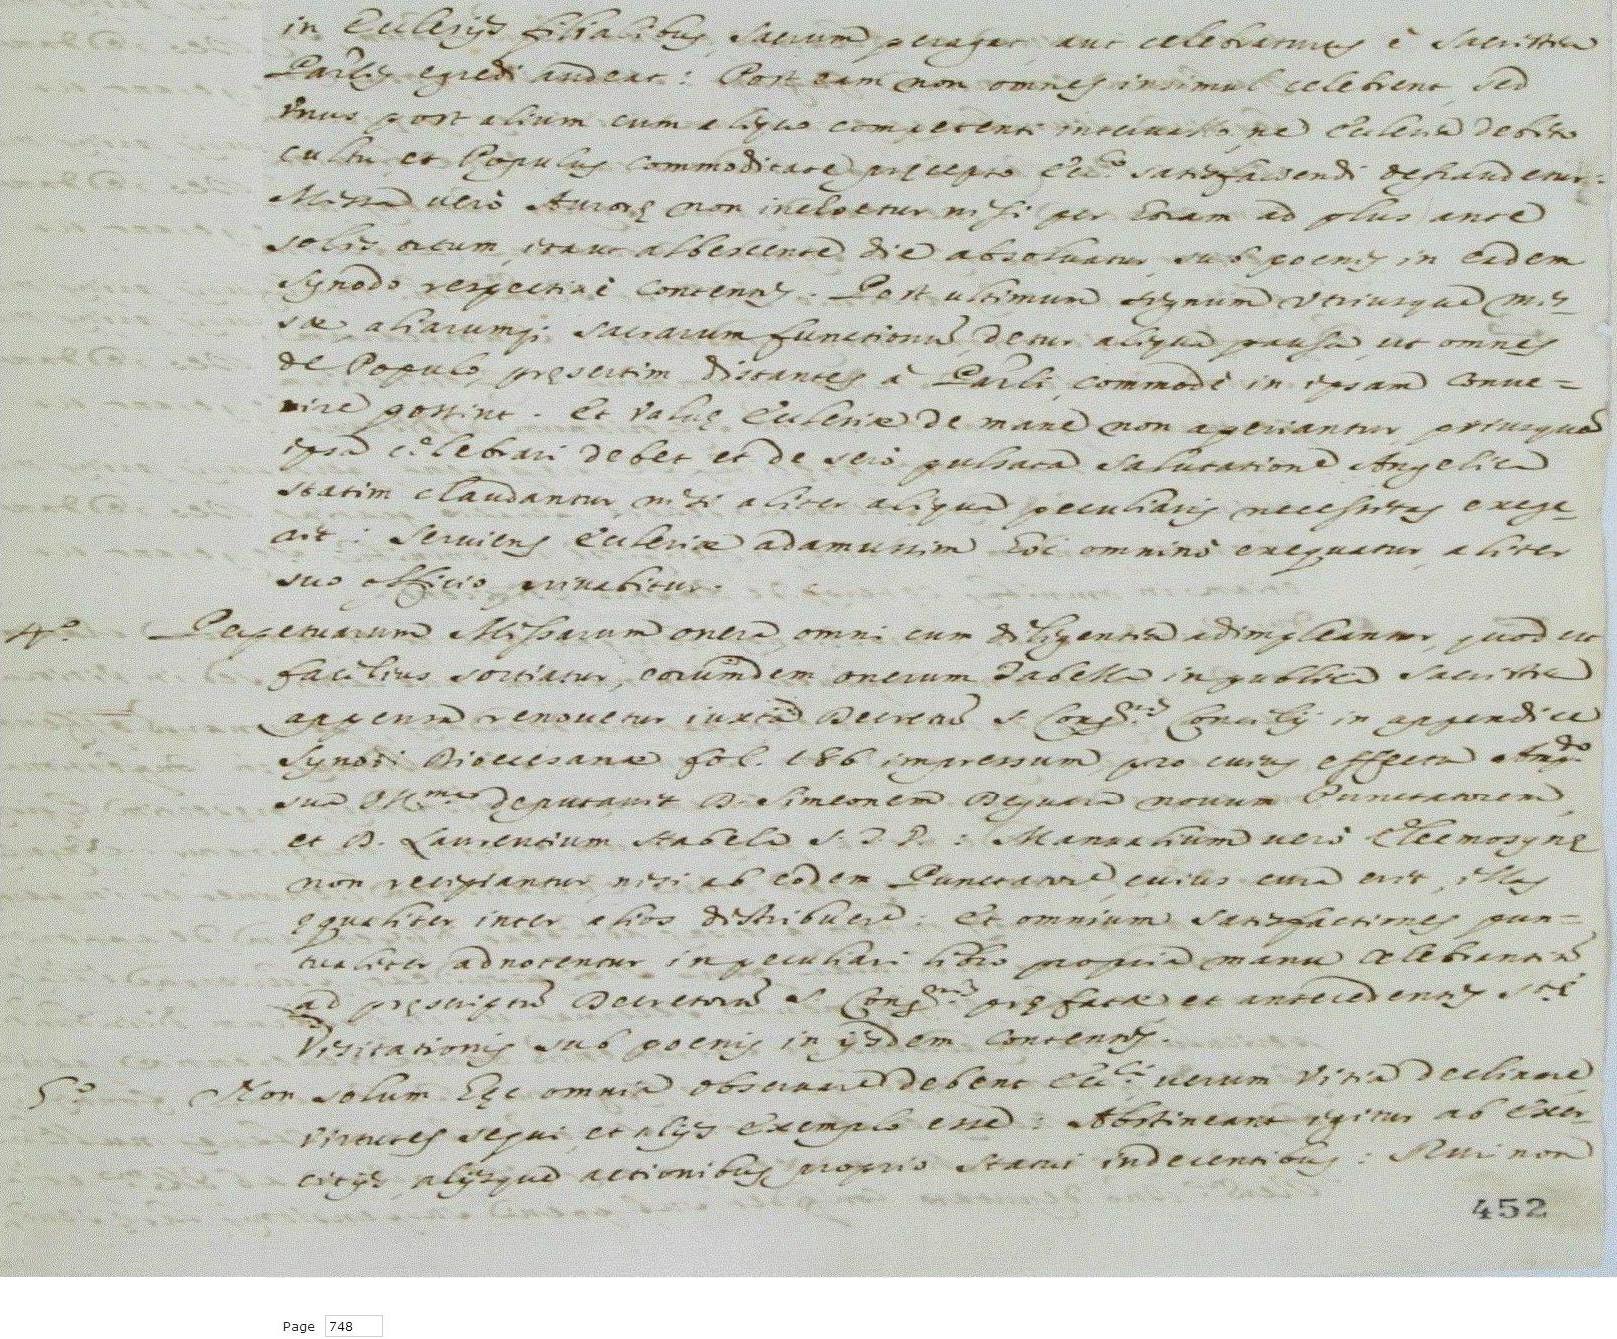 in Ecclesijs filialibus, Sacrum peragat aut celebraturus è Sacristia
Parlis egredi audeat: Post eam non omnes insimul celebrent, sed
Vnus post alium cum aliquo competenti interuallo, ne Ecclesia debito
cultu, et Populus commoditate pręcepto Ecc.º satisfaciendi defraudetur:
Missa uerò Aurorę non inchoetur nisi per horam ad plus ante
solis ortum, itaut albescente die absoluatur, sub poenis in eadem
Synodo respectiuè contentis. Post ultimum signum vtriusque mis-
sæ, aliarumq; sacrarum functionũ, detur aliqua pausa, ut omnes
de Populo, pręsertim distantes à Parli, commodè in ipsam conue=
nire possint. Et Valuę Ecclesiæ de mane non aperiantur, priusquam
ipsa celebrari debet et de serò pulsata salutatione Angelica
statim claudantur, nisi aliter aliqua peculiaris necessitas exege-
rit: Seruiens Ecclesiæ adamussim hoc omninò exequatur, aliter
suo officio priuabitur.
4º Perpetuarum Missarum onera omni cum diligentia adimpleantur, quod ut
facilius sortiatur, eorumdem onerum Tabella in publica Sacristia
appensa renouetur iuxta Decretũ S. Cong.nis Concilij in appendice
Synodi Diocesanæ fol. 186 impressum, pro cuius effectu Amp.do
sua Ill.ma deputauit D. Simeonem Deguara nouum Punctatorem,
et D. Laurentium Stabela S. T. P.: Manualium uerò Eleemosynę
non recipiantur, nisi ab eodem Punctatore, cuius cura erit, illas
ęqualiter inter alios distribuere: Et omnium satisfactiones pun=
tualiter adnotentur in peculiari libro propria manu celebrantiũ
ad pręscriptũ Decretorũ S. Cong.nis pręfatæ, et antecedentis S.tę
Visitationis sub poenis in ijsdem contentis.
5º Non solum hęc omnia obseruare debent Ecc.ci uerum vitia declinare,
virtutes sequi, et alijs exemplo esse: Abstineant igitur ab exer-
citijs, alijsque actionibus proprio statui indecentibus: Rui non
452
Page 748